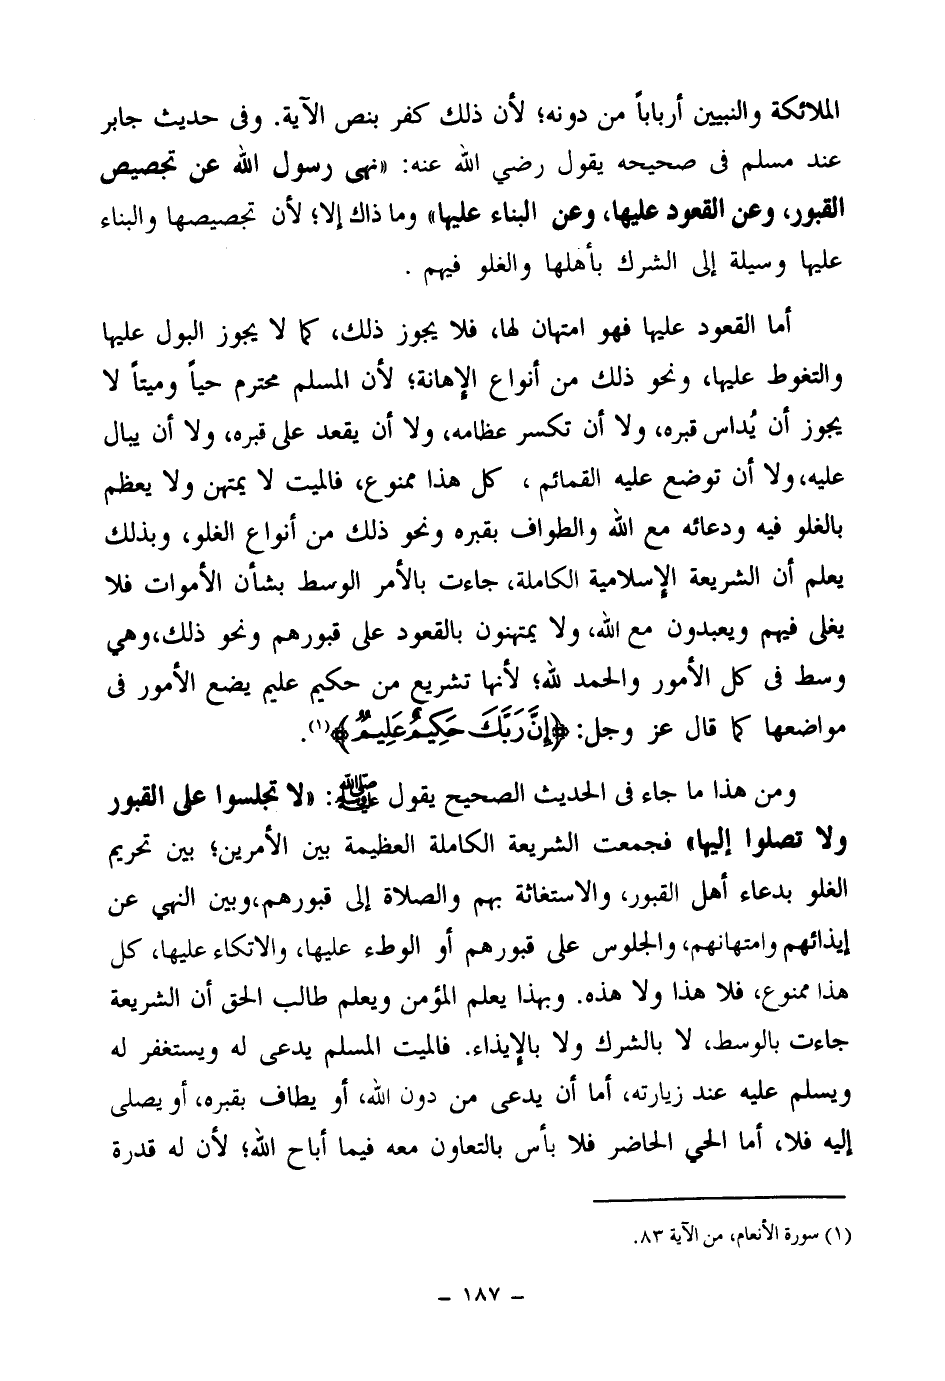 الملائكة والنبيين أرباباً من دونه؛ لأن ذلك كفر بنص الآية. وفى حديث جابر
عند مسلم فى صحيحه يقول رضي الله عنه: «نهى رسول الله عن تجصيص
القبور، وعن القعود عليها، وعن البناء عليها» وما ذاك إلا؛ لأن تجصيصها والبناء
عليها وسيلة إلى الشرك بأهلها والغلو فيهم .
أما القعود عليها فهو امتهان لها، فلا يجوز ذلك، كما لا يجوز البول عليها
والتغوط عليها، ونحو ذلك من أنواع الإهانة؛ لأن المسلم محترم حياً وميتاً لا
يجوز أن يُداس قبره، ولا أن تكسر عظامه، ولا أن يقعد على قبره، ولا أن يبال
عليه، ولا أن توضع عليه القمائم ، كل هذا ممنوع، فالميت لا يمتهن ولا يعظم
بالغلو فيه ودعائه مع الله والطواف بقبره ونحو ذلك من أنواع الغلو، وبذلك
يعلم أن الشريعة الإسلامية الكاملة، جاءت بالأمر الوسط بشأن الأموات فلا
يغلى فيهم ويعبدون مع الله، ولا يمتهنون بالقعود على قبورهم ونحو ذلك،وهي
وسط فى كل الأمور والحمد لله؛ لأنها تشريع من حكيم عليم يضع الأمور فى
مواضعها كما قال عز وجل: ﴿إِنَّ رَبَّكَ حَكِيمٌ عَلِيمٌ﴾(١).
ومن هذا ما جاء فى الحديث الصحيح يقول ﷺ: «لا تجلسوا على القبور
ولا تصلوا إليها» فجمعت الشريعة الكاملة العظيمة بين الأمرين؛ بين تحريم
الغلو بدعاء أهل القبور، والاستغاثة بهم والصلاة إلى قبورهم،وبين النهي عن
إيذائهم وامتهانهم، والجلوس على قبورهم أو الوطء عليها، والاتكاء عليها، كل
هذا ممنوع، فلا هذا ولا هذه. وبهذا يعلم المؤمن ويعلم طالب الحق أن الشريعة
جاءت بالوسط، لا بالشرك ولا بالإيذاء. فالميت المسلم يدعى له ويستغفر له
ويسلم عليه عند زيارته، أما أن يدعى من دون الله، أو يطاف بقبره، أو يصلى
إليه فلا، أما الحي الحاضر فلا بأس بالتعاون معه فيما أباح الله؛ لأن له قدرة
(١) سورة الأنعام، من الآية ٨٣.
- ١٨٧ -